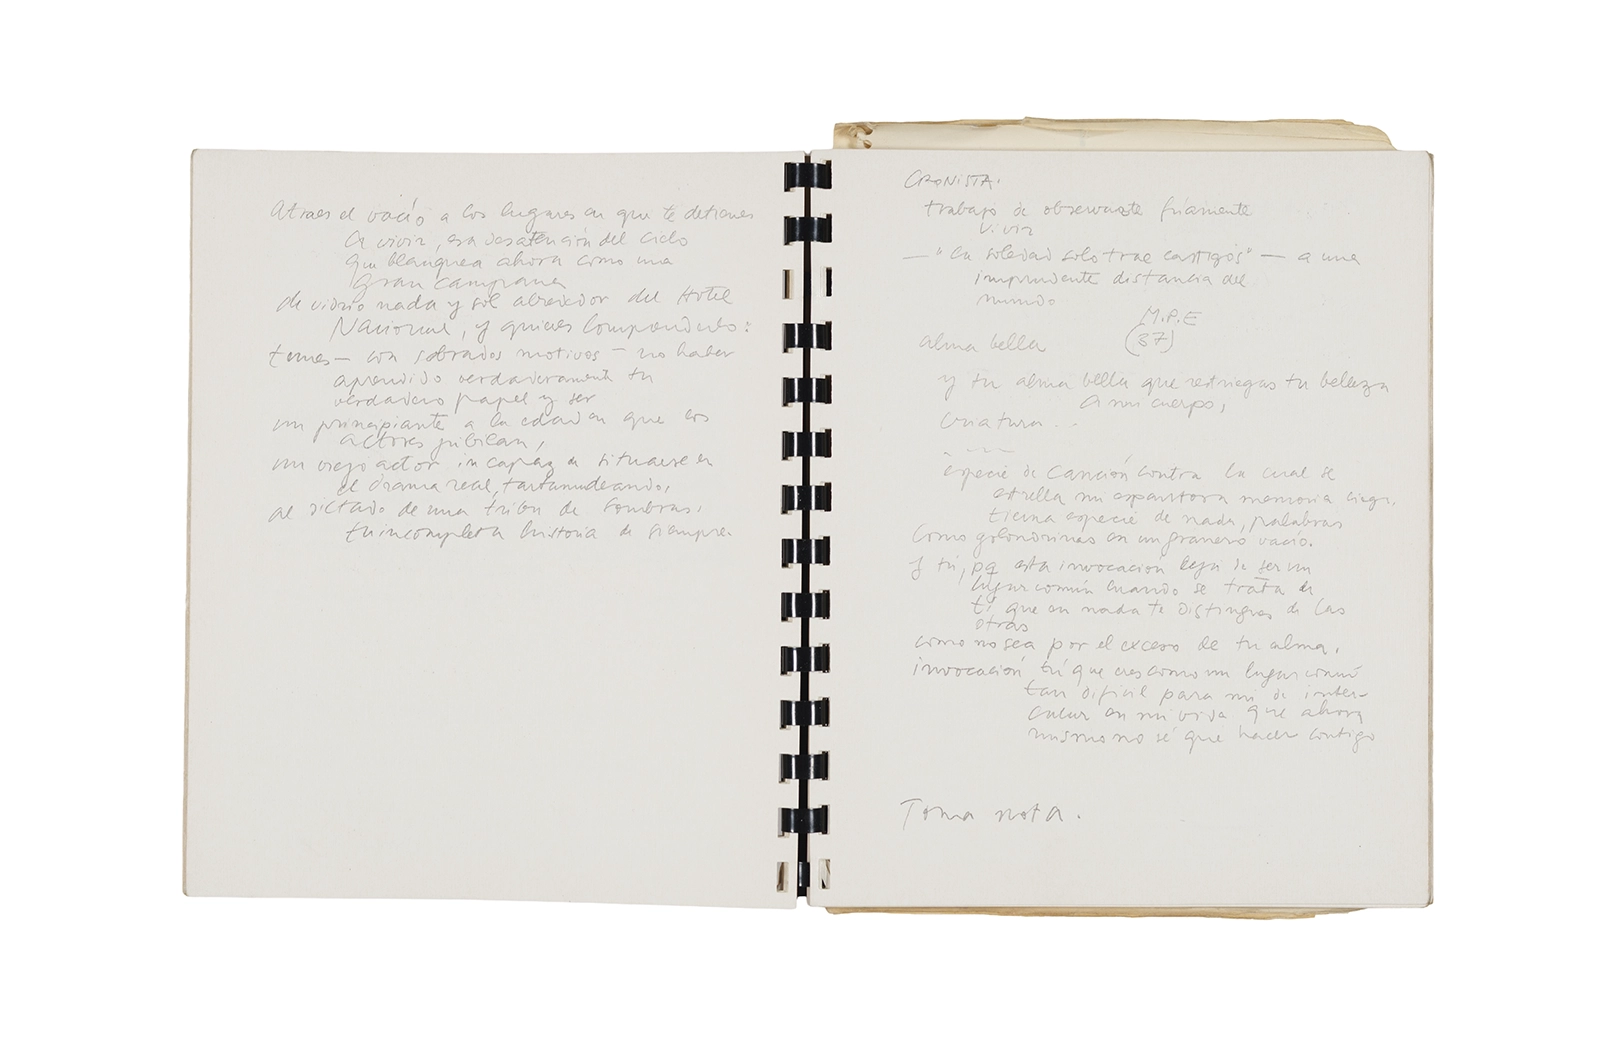 Atraes el vacío a los lugares en que te detienes
a vivir, esa desatención del cielo
que blanquea ahora como una
gran campana
de vidrio nada y sol alrededor del Hotel
Nacional, y quieres comprenderlo:
temes — con sobrados motivos — no haber
aprendido verdaderamente tu
verdadero papel y ser
un principiante a la edad en que los
actores jubilan,
un viejo actor incapaz de situarse en
el drama real, tartamudeando,
al dictado de una tribu de sombras,
tu incompleta historia de siempre.
CRONISTA.
trabajo de observarte fríamente
vivir
— "la soledad solo trae castigos" — a una
imprudente distancia del
mundo
M.P.E
alma bella (37)
y tu alma bella que restriegas tu belleza
a mi cuerpo,
criatura...
especie de canción contra la cual se
estrella mi espantosa memoria ciega.
tierna especie de nada, palabras
como golondrinas en un granero vacío.
y tú, pq esta invocación deja de ser un
lugar común cuando se trata de
tí que en nada te distingues de las
otras
como no sea por el exceso de tu alma,
invocación tú que eres como un lugar común
tan dificil para mi de inter-
calar en mi vida que ahora
mismo no sé que hacer contigo
Toma nota.